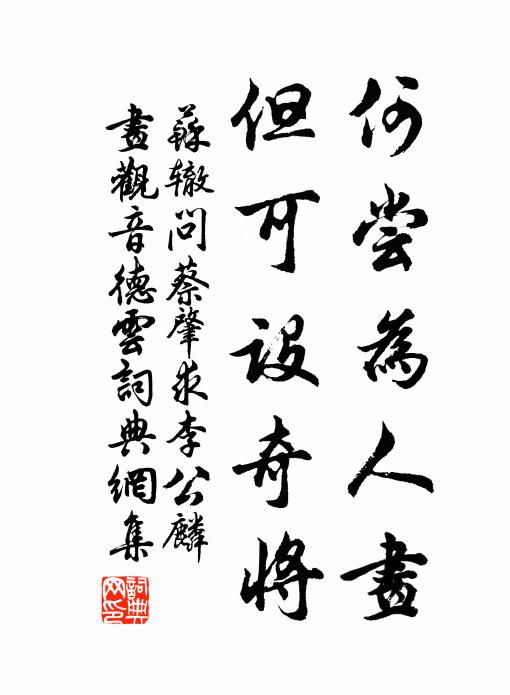 何尝為人畫
但可設奇將
蘇辙问蔡肇求李公麟
畫觀音德雲詞典網集
詞典网印